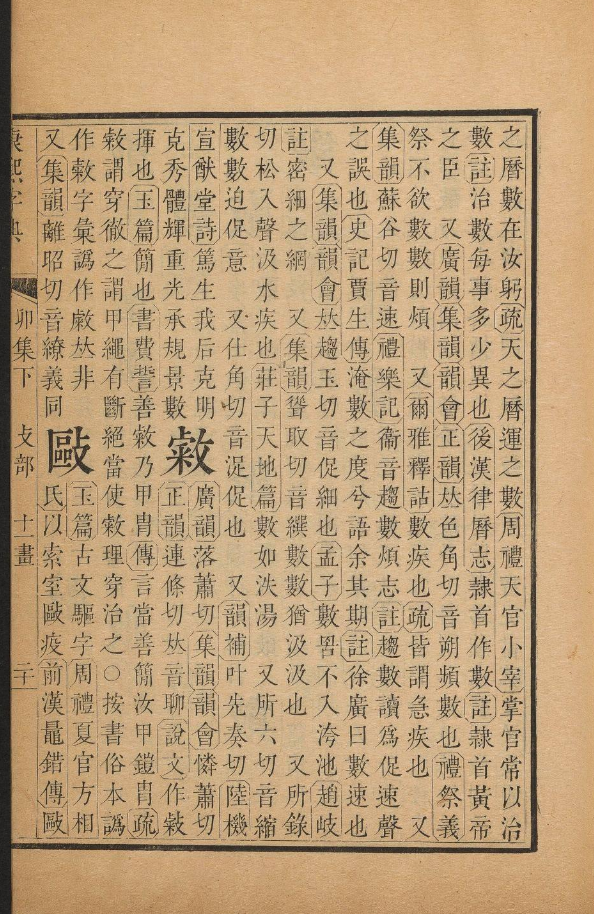 之曆數在汝躬疏天之曆運之數周禮天官小宰掌官常以治
數註治數每事多少異也後漢律曆志隷首作數註隷首黃帝
之臣 又廣韻集韻韻會正韻𠀤色角切音朔頻數也禮祭義
祭不欲數數則煩 又爾雅釋詁數疾也疏皆謂急疾也 又
集韻蘇谷切音速禮樂記衞音趨數煩志註趨數讀爲促速聲
之誤也史記賈生傳淹數之度兮語余其期註徐廣曰數速也
又集韻韻會𠀤趨玉切音促細也孟子數罟不入洿池趙岐
註密細之網 又集韻聳取切音繏數數猶汲汲也 又所錄
切松入聲汲水疾也莊子天地篇數如泆湯 又所六切音縮
數數迫促意 又仕角切音浞促也 又韻補叶先奏切陸機
宣猷堂詩篤生我后克明克秀體輝重光承規景數
敹廣韻落蕭切集韻韻會憐蕭切正韻連條切𠀤音聊說文作敹
揮也玉篇簡也書費誓善敹乃甲冑傳言當善簡汝甲鎧冑疏
敹謂穿徹之謂甲繩有斷絕當使敹理穿治之○按書俗本譌
作敹字彙譌作𠪱𠀤非
又集韻離昭切音繚義同
毆玉篇古文驅字周禮夏官方相氏以索室毆疫前漢鼂錯傳毆
康熙字典
卯集下 攴部 十一畫 二十